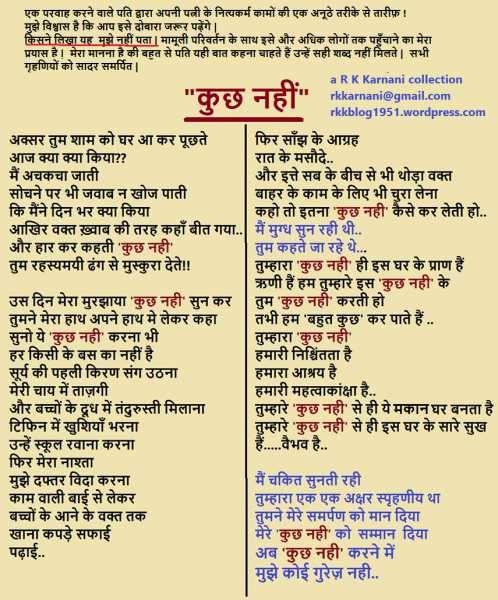 एक परवाह करने वाले पति द्वारा अपनी पत्नी के नित्यकर्म कामों की एक अनूठे तरीके से तारीफ़ !
मुझे विश्वास है कि आप इसे दोबारा जरूर पड़ेंगे |
किसने लिखा यह मुझे नहीं पता | मामूली परिवर्तन के साथ इसे और अधिक लोगों तक पहुँचाने का मेरा
प्रयास है | मेरा मानना है की बहत से पति यही बात कहना चाहते हैं उन्हें सही शब्द नहीं मिलते | सभी
गृहणियों को सादर समर्पित |
a R K Karnani collection
rkkarnani@gmail.com
rkkblog1951.wordpress.com
"कुछ नहीं"
अक्सर तुम शाम को घर आ कर पूछते
आज क्या क्या किया??
मैं अचकचा जाती
सोचने पर भी जवाब न खोज पाती
कि मैंने दिन भर क्या किया
आखिर वक्त ख़्वाब की तरह कहाँ बीत गया..
और हार कर कहती 'कुछ नही'
तुम रहस्यमयी ढंग से मुस्कुरा देते!!
उस दिन मेरा मुरझाया 'कुछ नही' सुन कर
तुमने मेरा हाथ अपने हाथ मे लेकर कहा
सुनो ये 'कुछ नही' करना भी
हर किसी के बस का नहीं है
सूर्य की पहली किरण संग उठना
मेरी चाय में ताज़गी
और बच्चों के दूध में तंदुरुस्ती मिलाना
टिफिन में खुशियाँ भरना
उन्हें स्कूल रवाना करना
फिर मेरा नाश्ता
मुझे दफ्तर विदा करना
काम वाली बाई से लेकर
बच्चों के आने के वक्त तक
खाना कपड़े सफाई
पढ़ाई..
फिर साँझ के आग्रह
रात के मसौदे..
और इत्ते सब के बीच से भी थोड़ा वक्त
बाहर के काम के लिए भी चुरा लेना
कहो तो इतना 'कुछ नही' कैसे कर लेती हो..
मैं मुग्ध सुन रही थी..
तुम कहते जा रहे थे...
तुम्हारा 'कुछ नही' ही इस घर के प्राण हैं
ऋणी हैं हम तुम्हारे इस 'कुछ नही' के
तुम 'कुछ नही' करती हो
तभी हम 'बहुत कुछ' कर पाते हैं ..
तुम्हारा 'कुछ नही'
हमारी निश्चिंतता है
हमारा आश्रय है
हमारी महत्वाकांक्षा है..
तुम्हारे 'कुछ नही' से ही ये मकान घर बनता है
तुम्हारे 'कुछ नही' से ही इस घर के सारे सुख
हैं.....वैभव है..
मैं चकित सुनती रही
तुम्हारा एक एक अक्षर स्पृहणीय था
तुमने मेरे समर्पण को मान दिया
मेरे 'कुछ नही' को सम्मान दिया
अब 'कुछ नही' करने में
मुझे कोई गुरेज़ नही..